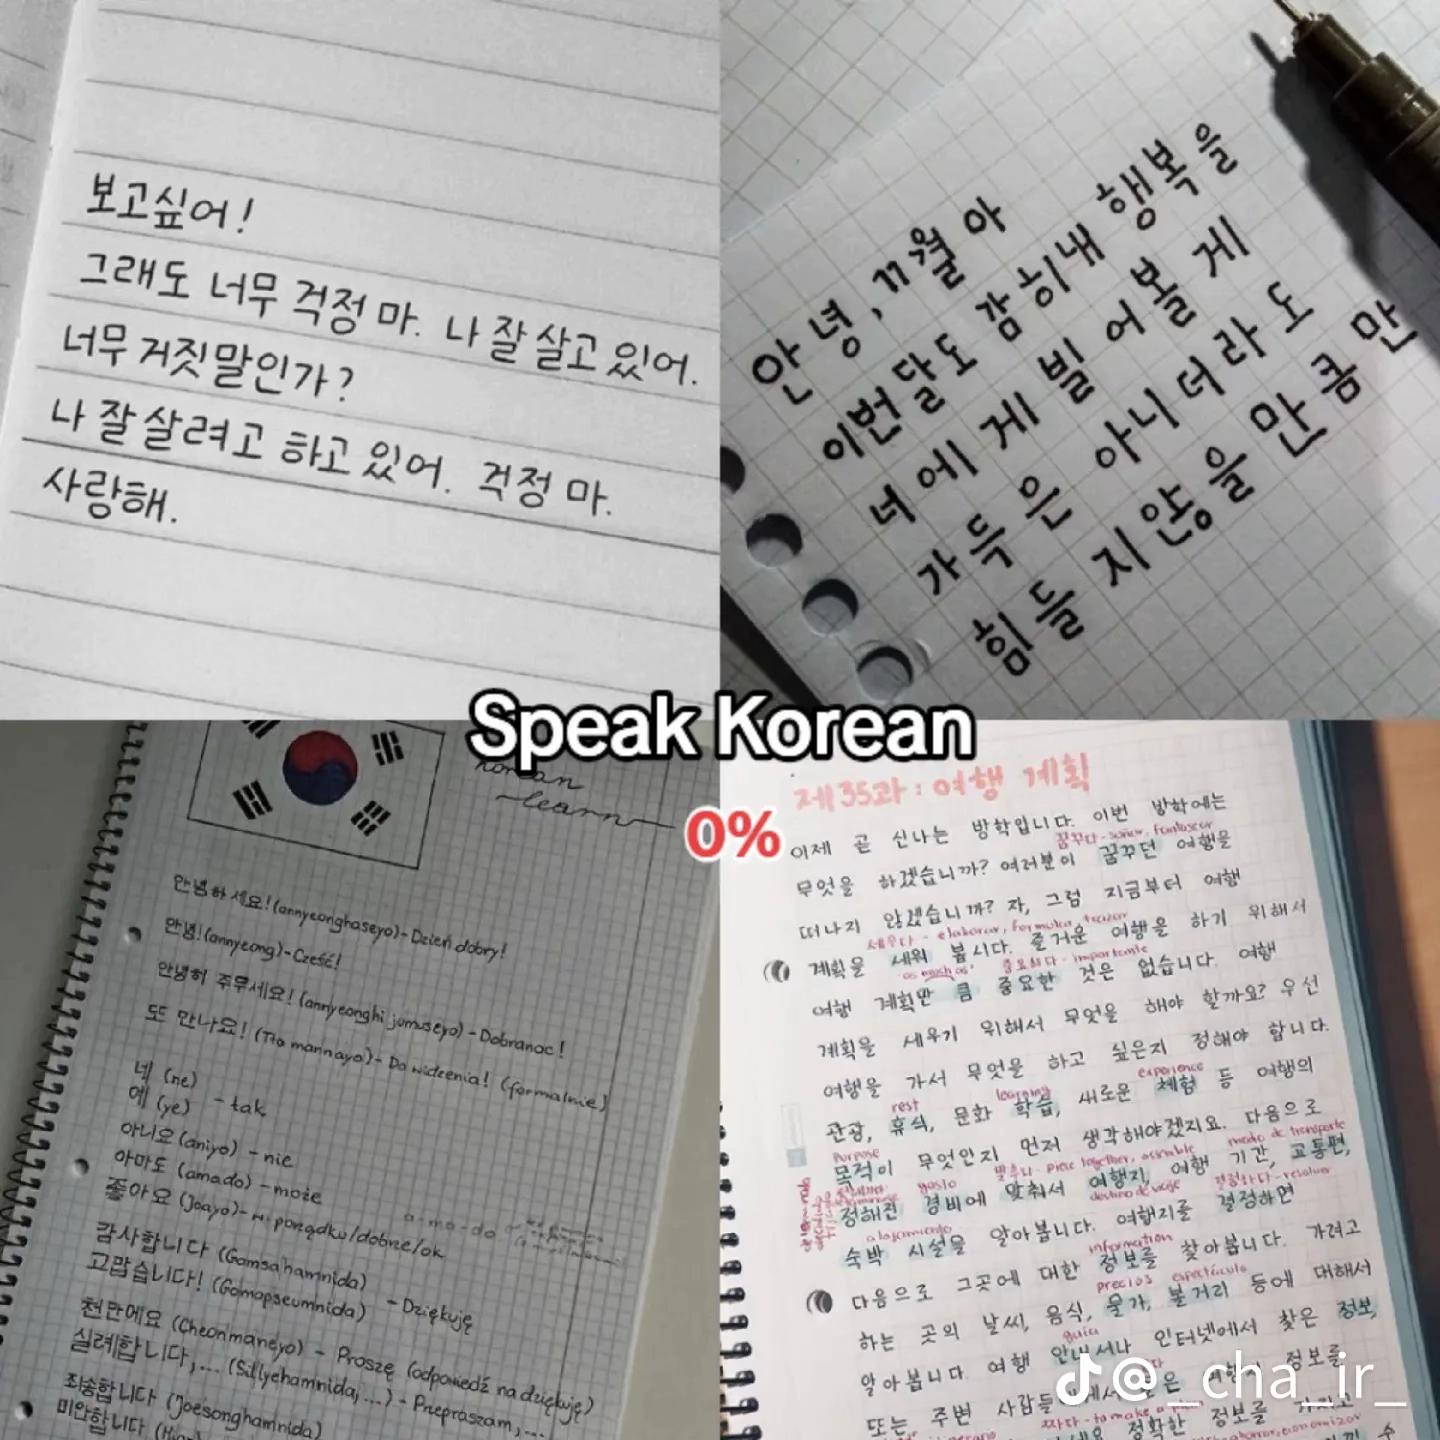 보고싶어!
그래도 너무 걱정 마. 나 잘 살고 있어.
너무 거짓말인가?
나 잘 살려고 하고 있어. 걱정 마.
사랑해.
안녕, 11월아
이번달도 감히내 행복을
너에게 빌어볼게
가득은 아니더라도
힘들지않을만큼만
Speak Korean
0%
korean
learn
안녕하세요! (annyeonghaseyo) - Dzień dobry!
안녕! (annyeong) - Cześć!
안녕히 주무세요! (annyeonghi jumuseyo) - Dobranoc!
또 만나요! (Tto mannayo) - Do widzenia! (formalnie)
네 (ne)
예 (ye) - tak
아니요 (aniyo) - nie
아마도 (amado) - może
좋아요 (Joayo) - w porządku/dobrze/ok
a-ma-do
감사합니다 (Gamsahamnida)
고맙습니다! (Gomapseumnida) - Dziękuję
천만에요 (Cheonmaneyo) - Proszę (odpowiedź na dziękuję)
실례합니다,... (Sillyehamnida,...) - Przepraszam,...
죄송합니다 (Joesonghamnida)
미안합니다
제35과: 여행 계획
이제 곧 신나는 방학입니다. 이번 방학에는
꿈꾸다 - soñar, fantasear
무엇을 하겠습니까? 여러분이 꿈꾸던 여행을
떠나지 않겠습니까? 자, 그럼 지금부터 여행
세우다 - elaborar, formular, trazar
계획을 세워 봅시다. 즐거운 여행을 하기 위해서
as much as 중요하다 - importante
여행 계획만큼 중요한 것은 없습니다. 여행
계획을 세우기 위해서 무엇을 해야 할까요? 우선
여행을 가서 무엇을 하고 싶은지 정해야 합니다.
rest learning experience
관광, 휴식, 문화 학습, 새로운 체험 등 여행의
purpose
목적이 무엇인지 먼저 생각해야겠지요. 다음으로
맞추다 - piece together, assemble modo de transporte
정해진 경비에 맞춰서 여행지, 여행 기간, 교통편,
gasto destino de viaje 결정하다 - resolver
숙박 시설을 알아봅니다. 여행지를 결정하면
alojamiento information
다음으로 그곳에 대한 정보를 찾아봅니다. 가려고
precios espectáculo
하는 곳의 날씨, 음식, 물가, 볼거리 등에 대해서
guía
알아봅니다. 여행 안내서나 인터넷에서 찾은 정보,
또는 주변 사람들 여행지 정보를
정확한 정보를
@__cha__ir__